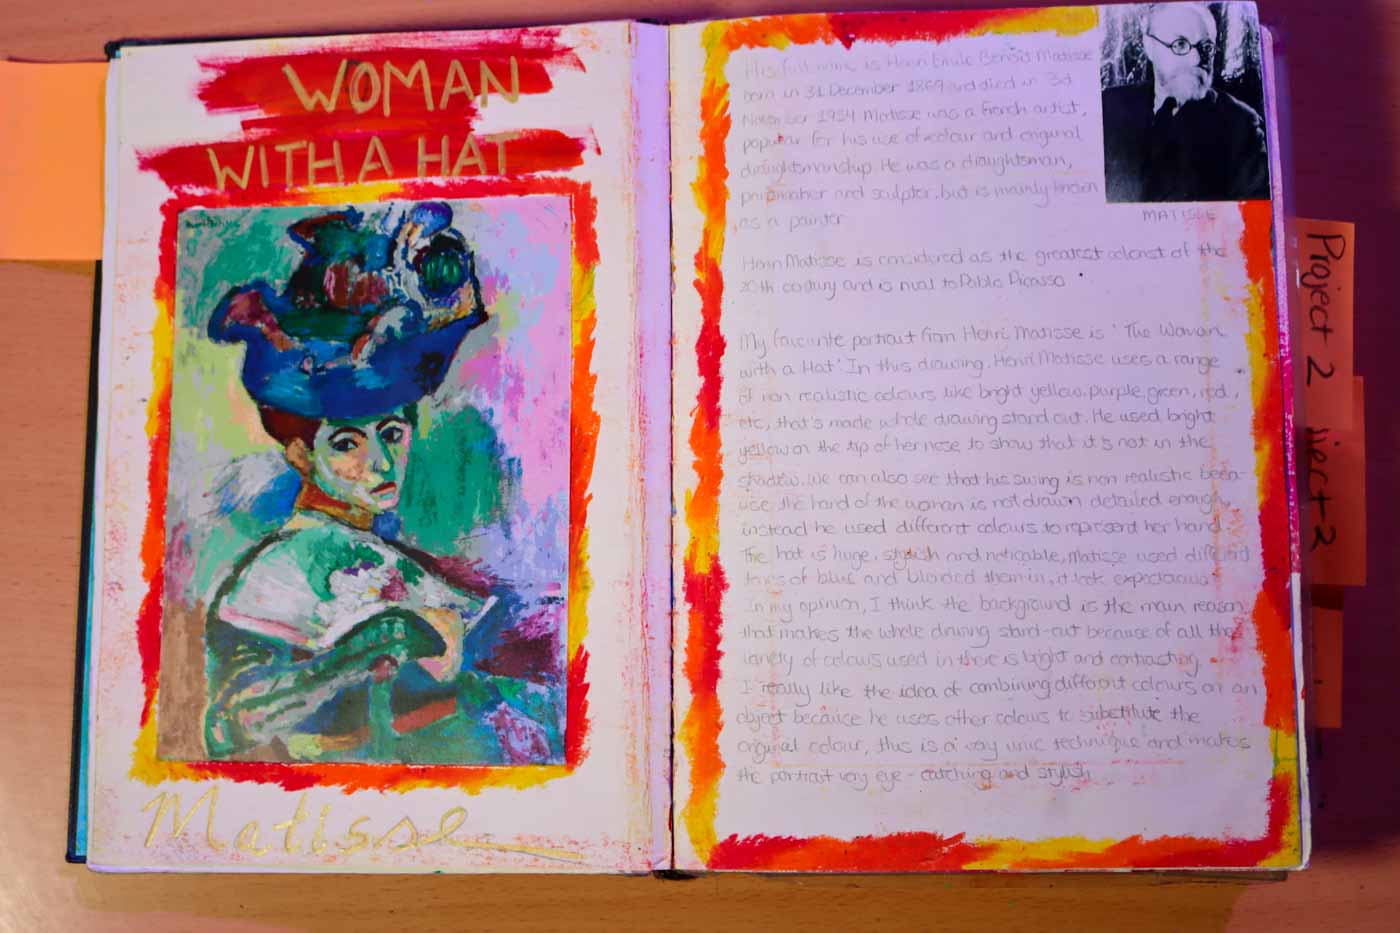 WOMAN
WITH A HAT
Matisse
His full name is Henri Emile Benoit Matisse
born in 31 December 1869 and died in 3d
November 1954 Matisse was a french artist,
popular for his use of colour and original
draughtsmanship. He was a draughtsman,
printmaker and sculptor, but is mainly known
as a painter
MATISSE
Henri Matisse is considured as the greatest colorist of the
20th century and is rival to Pablo Picasso
My favourite portrait from Henri Matisse is 'The Woman
with a Hat'. In this drawing, Henri Matisse uses a range
of non realistic colours like bright yellow, purple, green, red,
etc, that's made whole drawing stand out. He used bright
yellow on the tip of her nose to show that it is not in the
shadow. We can also see that his is non realistic beca-
use the hand of the woman is not drawn detailed enough,
instead he used different colours to represent her hand.
The hat is huge, stylish and noticable, Matisse used different
tones of blue and blended them in, it look expectacular
In my opinion, I think the background is the main reason
that makes the whole drawing stand-out because of all the
variety of colours used in there is bright and contracting.
I really like the idea of combining different colours on an
object because he uses other colours to substitute the
original colour, this is a very unic technique and makes
the portrait very eye-catching and stylish
Project 2
ject 3